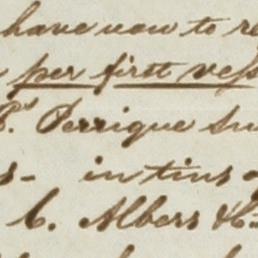 have you to re
per first vess
Perrique Su
s - in tins o
C. Albers &